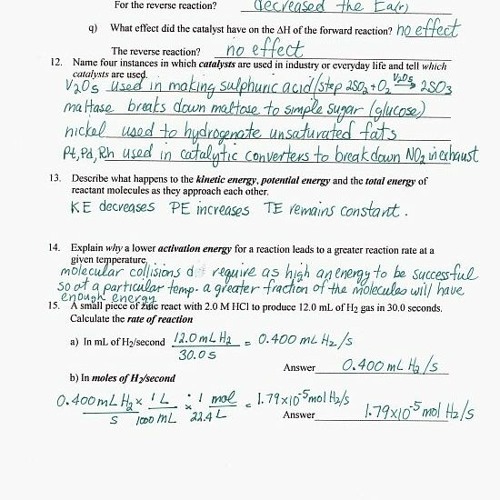 For the reverse reaction? decreased the Ea(r)
q) What effect did the catalyst have on the ΔH of the forward reaction? no effect
The reverse reaction? no effect
12. Name four instances in which catalysts are used in industry or everyday life and tell which
catalysts are used.
V2O5 used in making sulphuric acid/step 2SO2 + O2 V2O5→ 2SO3
maltase breaks down maltose to simple sugar (glucose)
nickel used to hydrogenate unsaturated fats
Pt, Pd, Rh used in catalytic converters to break down NO2 in exhaust
13. Describe what happens to the kinetic energy, potential energy and the total energy of
reactant molecules as they approach each other.
KE decreases PE increases TE remains constant.
14. Explain why a lower activation energy for a reaction leads to a greater reaction rate at a
given temperature
molecular collisions require as high an energy to be successful
so at a particular temp. a greater fraction of the molecules will have
enough energy
15. A small piece of zinc react with 2.0 M HCl to produce 12.0 mL of H2 gas in 30.0 seconds.
Calculate the rate of reaction
a) In mL of H2/second 12.0 mL H2 / 30.0 s = 0.400 mL H2/s
Answer 0.400 mL H2/s
b) In moles of H2/second
0.400 mL H2 / s × 1 L / 1000 mL × 1 mol / 22.4 L = 1.79 x 10-5 mol H2/s
Answer 1.79 x 10-5 mol H2/s